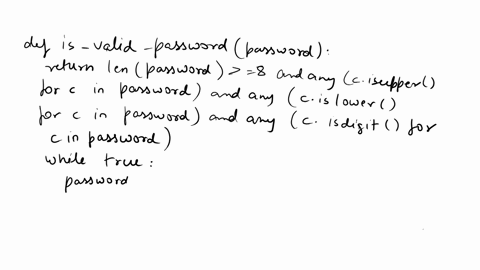 def is_valid_password(password):
return len(password) >=8 and any (c.isupper()
for c in password) and any (c.islower()
for c in password) and any (c. isdigit() for
c in password)
while true:
password